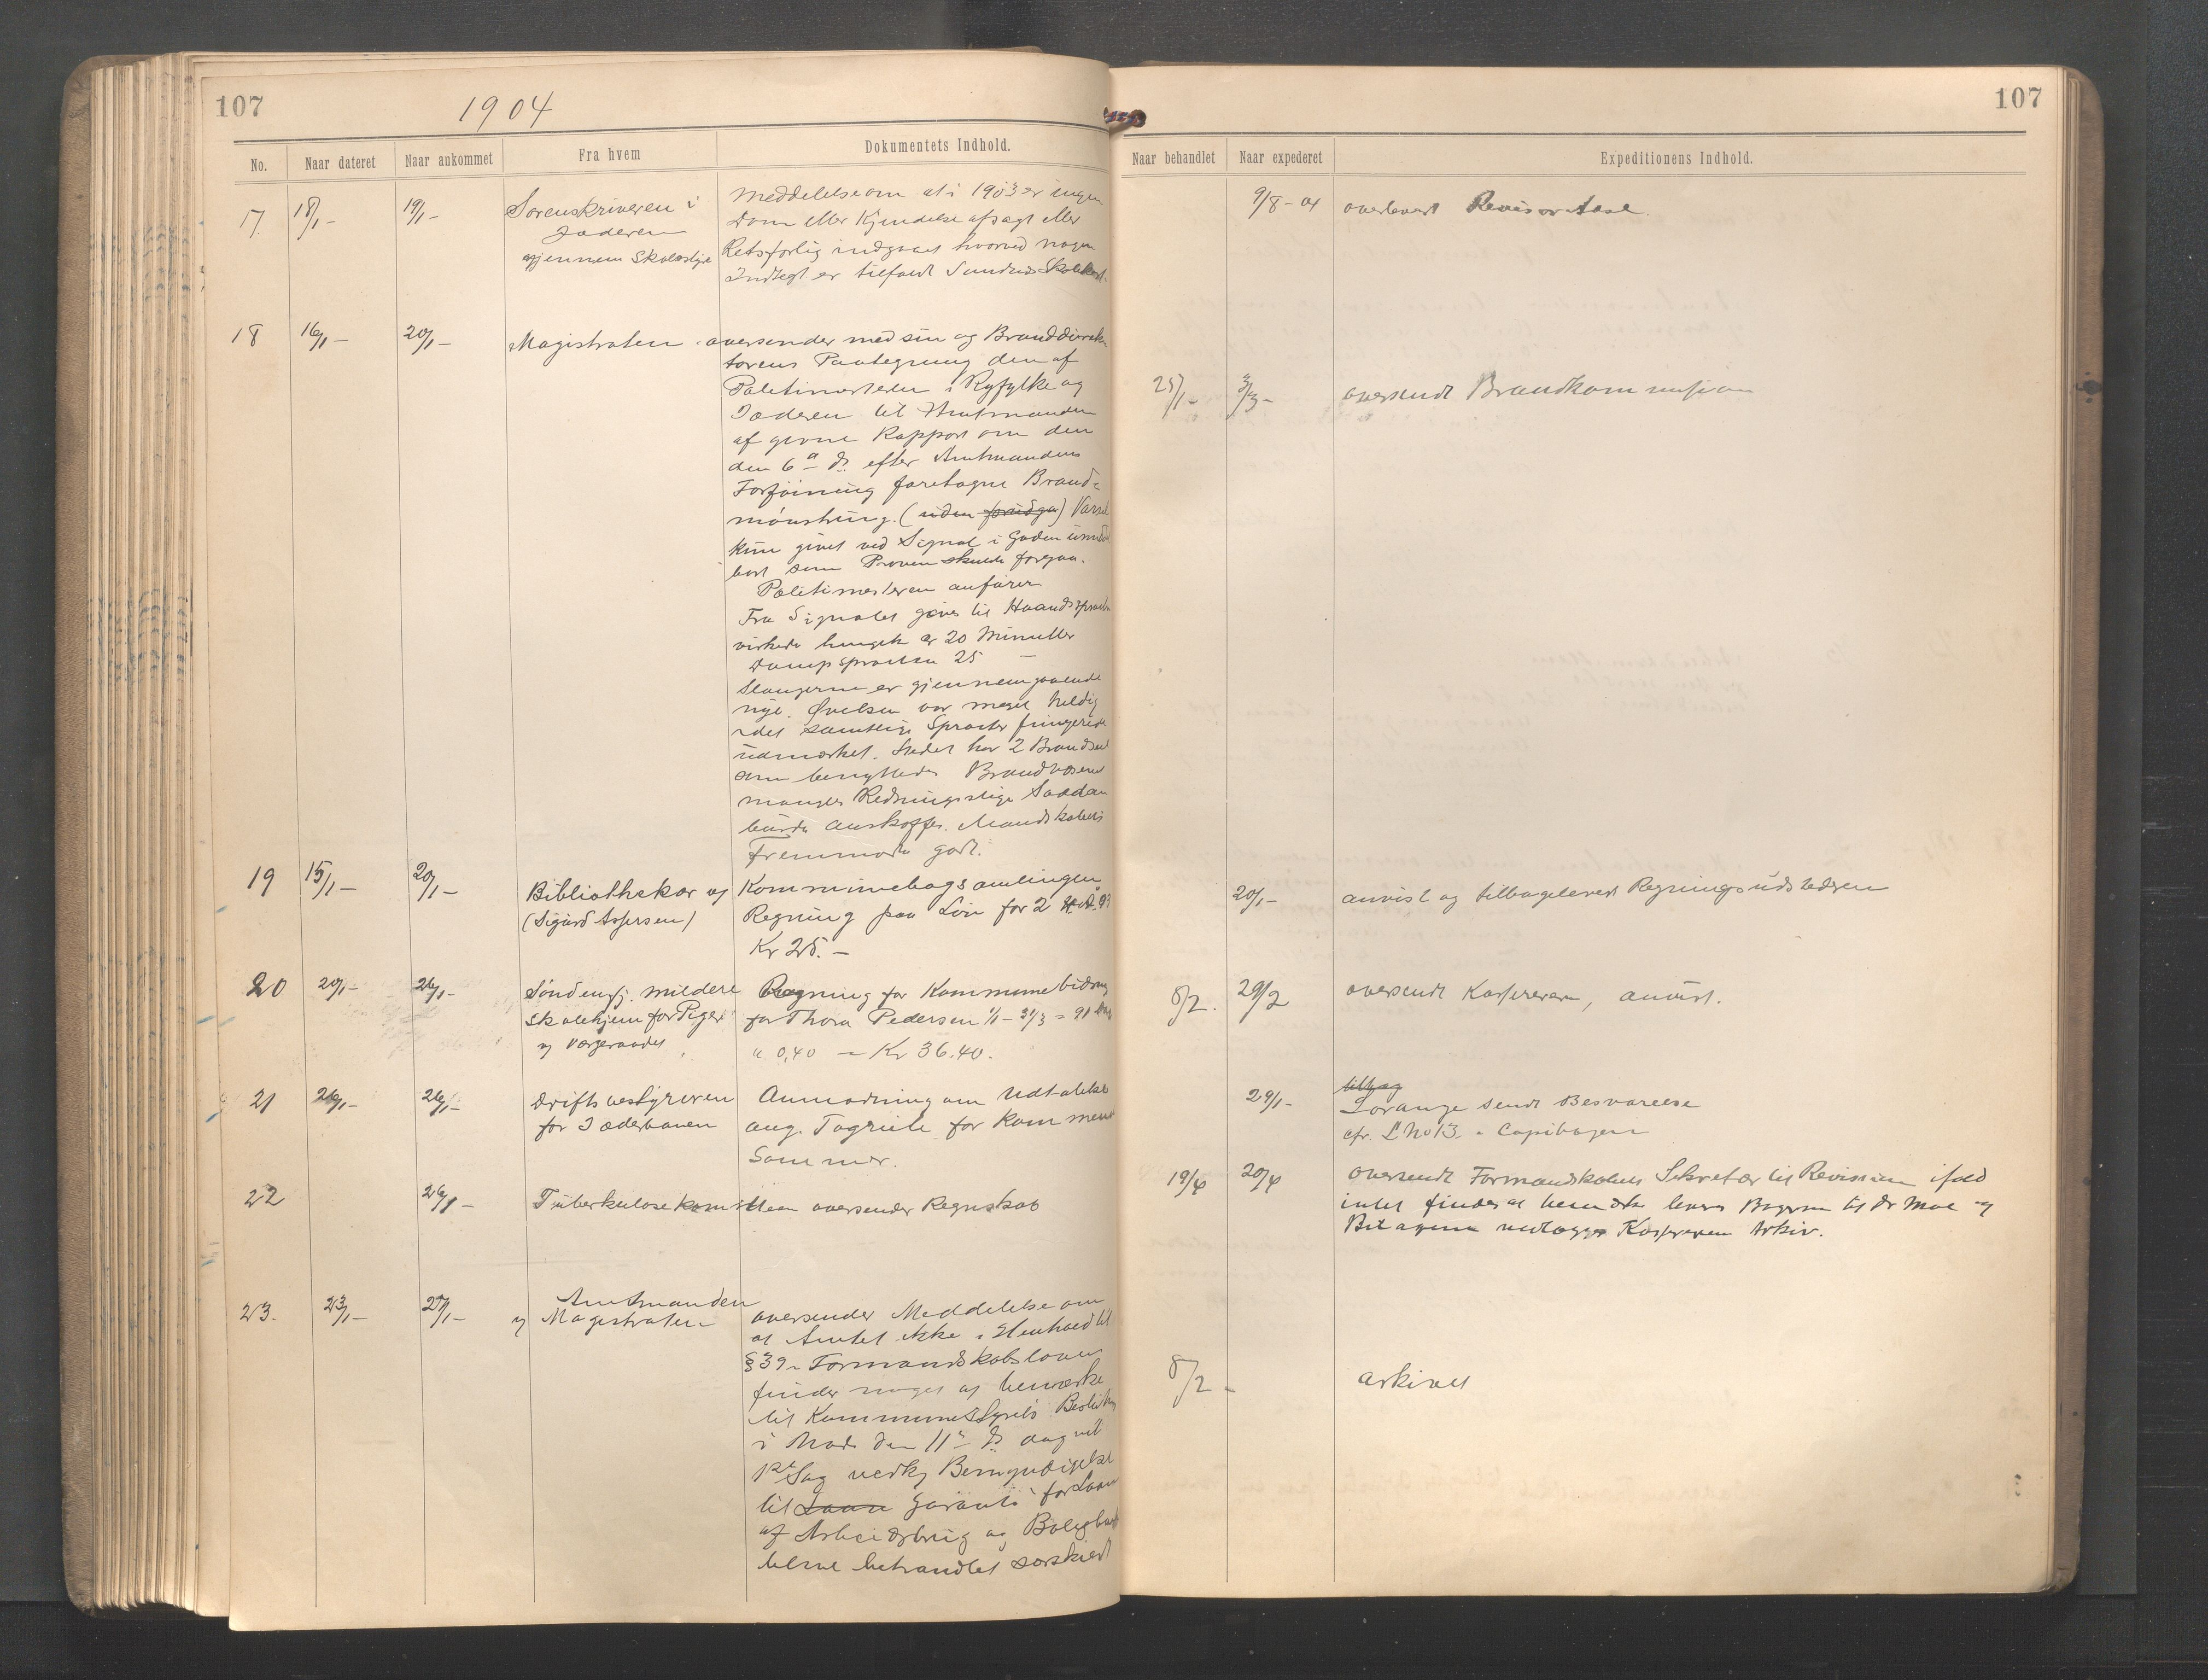 107
1904
No.
Naar dateret
Naar ankommet
Fra hvem
Dokumentets Indhold.
17
18/1 -
19/1 -
Sorenskriveren i
Jæderen
gjennem Skolestyre
Meddelelse om at i 1903 er ingen
Dom eller Kjendelse afsagt eller
Retsforlig indgaaet hvorved nogen
Indtegt er tilfaldt Sandnes
18
16/1 -
20/1 -
Magistraten
oversender med sin og Branddirek-
törens Paategning den af
Politimesteren i Ryfylke og
Jæderen til Amtmanden
af givne Rapport om den
den 6a ds. efter Amtmandens
Forföining foretagne Brand-
mönstring. (uden ) Varsel
kun givet ved Signal i Gaden
som Pröven skulde foregaa.
Politimesteren anförer
Fra Signalet gives til
virkede er 20 Minutter
Dampspröiten 25 -
Slangerne er gjennemgaaende
nye. Övelsen var meget heldig
idet samtlige Spröiter fungerede
üdmærket. Stedet har 2
som benyttedes Brandvæsenet
mangler Redningsstige Saadan
burde anskaffes. Mandskabets
Fremmöde godt.
19
15/1 -
20/1 -
Bibliothekar og
(Sigurd Asserson)
Kommunebogsamlingen
Regning paa Lön for 2
Kr 25. -
20
20/1 -
26/1 -
Söndenfj. mildere
Skolehjem for Piger
og Værgeraadet
Regning for Kommunebidrag
for Thora Pedersen 1/1 - 31/3 = 91 Dag
a 0,40 = Kr 36.40.
21
26/1 -
26/1 -
Driftsbestyreren
for Jæderbanen
Anmodning om Udtalelse
ang. Togrute for kommende
Sommer.
22
26/1 -
Tuberkulosekomiteen oversender Regnskab
23.
23/1 -
27/1 -
Amtmanden
og Magistraten
oversender Meddelelse om
at Amtet ikke i Henhold til
§ 39 Formandskabsloven
finder noget at bemærke
til Kommunestyrets Beslutning
i Möde den 11te ds angaaende
Sag vedk Bemyndigelse
til Laan Garanti for Laan
af Arbeiderbrug og
belone behandlet særskilt
107
Naar behandlet
Naar expederet
Expeditionens Indhold.
9/8 - 04
overlevert Revisor Aase
25/1 -
3/3 -
oversendt Brandkommission
20/1 -
anvist og tilbageleveret Regningsudstederen
8/2.
29/2
oversendt Kassereren, anvist.
29/1 -
tilbag
Lorange sendt Besvarelse
cfr. L No 13 Copibogen
19/4
20/4
oversendt Formandskabets Sekretær til Revision ifald
intet findes at bemærke leveres Bogen til Dr Moe og
Bilagene vedlægges Kassererens Arkiv.
8/2 -
arkivet